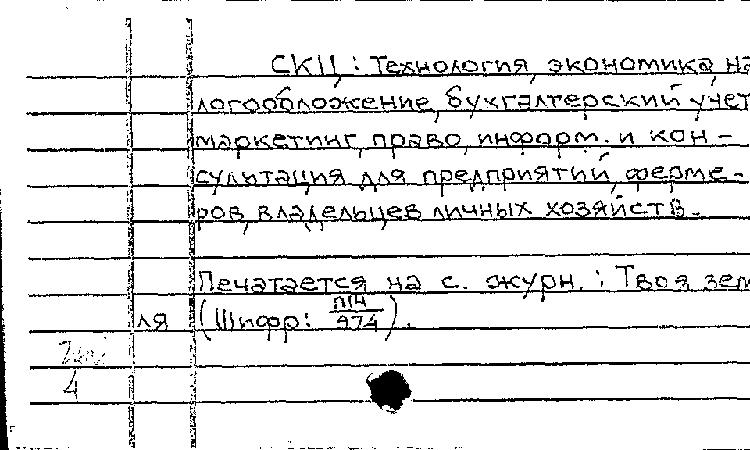 СКЦ : Технология, экономика, на
логообложение, бухгалтерский учет
маркетинг, право, информ. и кон-
сультация для предприятий, ферме-
ров, владельцев личных хозяйств.
Печатается на с. журн. : Твоя зем
ля (Шифр: П14/974).
4